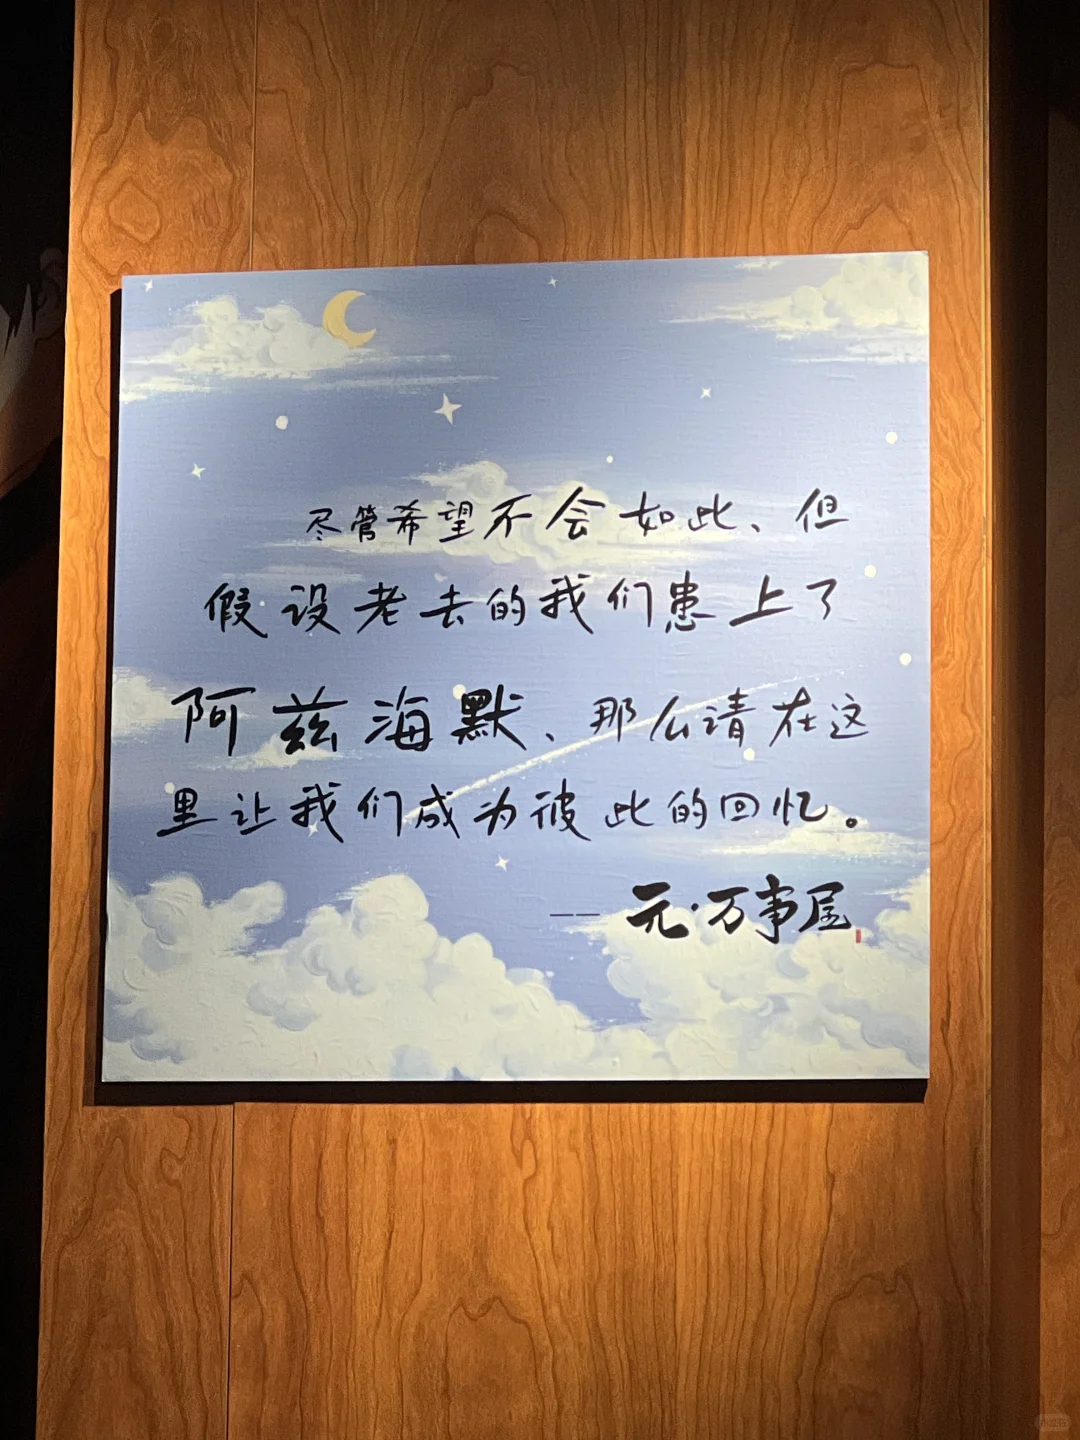 尽管希望不会如此、但
假设老去的我们患上了
阿兹海默、那么请在这
里让我们成为彼此的回忆。
—— 元·万事屋